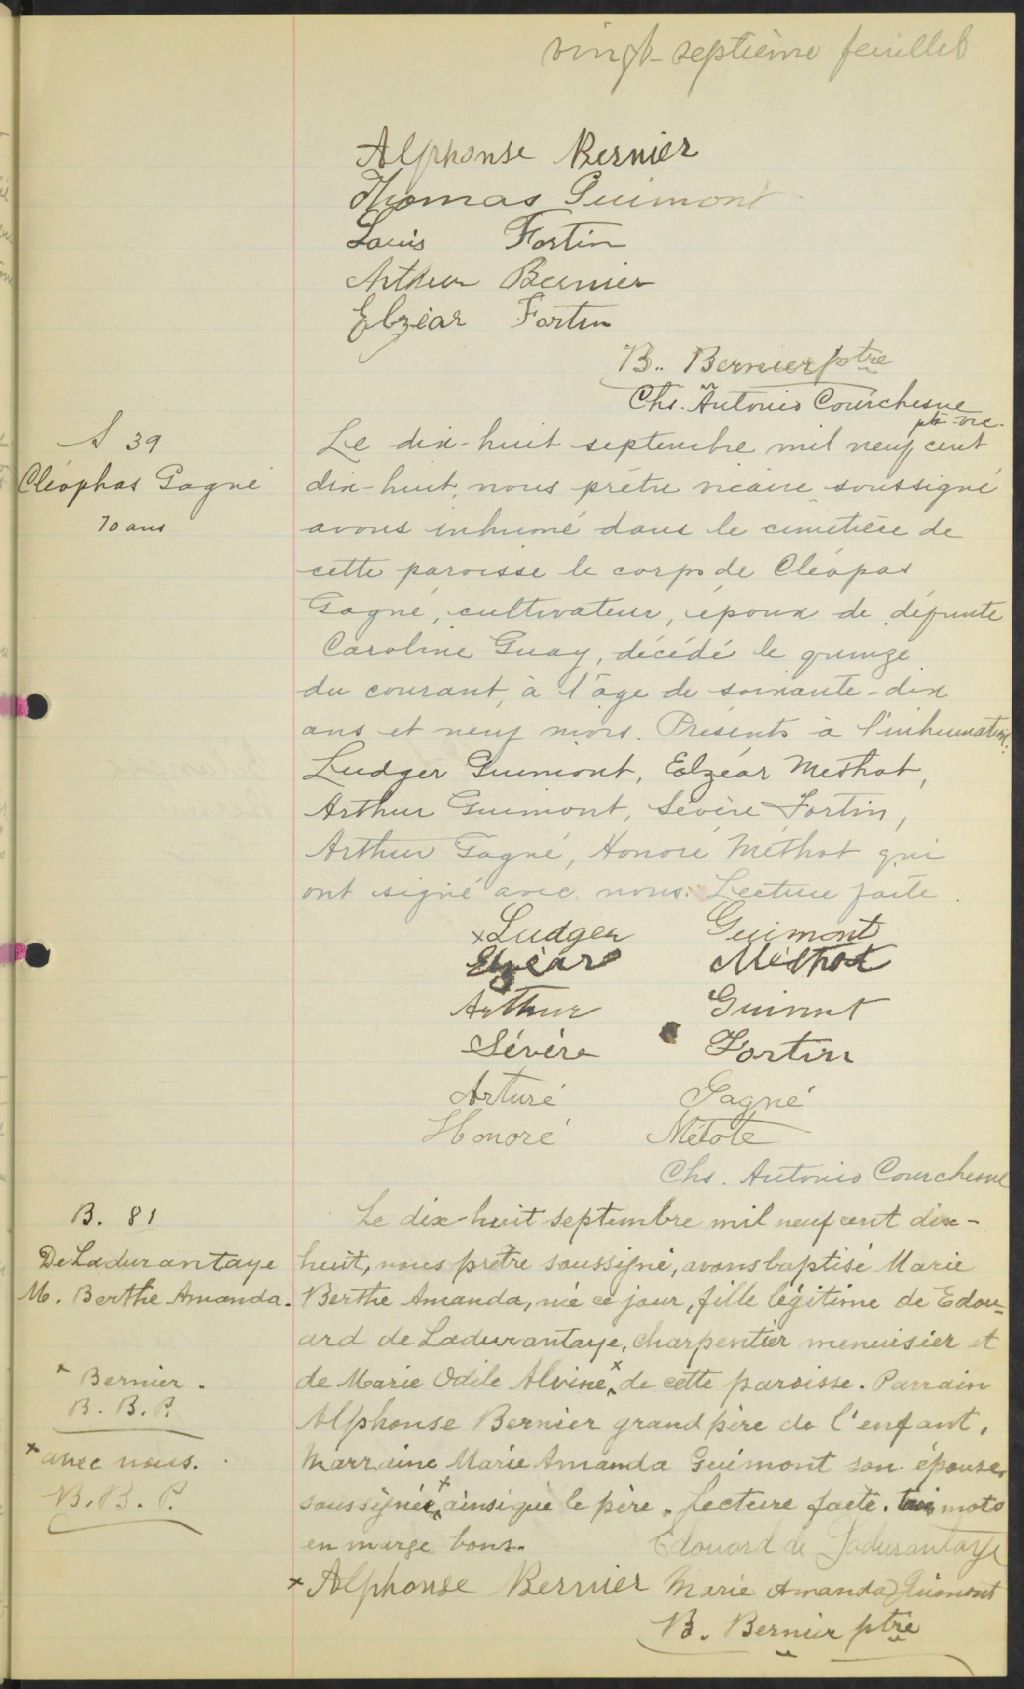 vingt-septième feuillet
Alphonse Bernier
Thomas Guimont
Louis Fortin
Arthur Bernier
Elzéar Fortin
B. Bernier ptre
Chs. Antonio Courchesne
ptr vic.
S 39
Cléophas Gagné
70 ans
Le dix-huit septembre mil neuf cent
dix-huit, nous prêtre vicaire soussigné
avons inhumé dans le cimetière de
cette paroisse le corps de Cléopas
Gagné, cultivateur, époux de défunte
Caroline Guay, décédé le quinze
du courant, à l'âge de soixante-dix
ans et neuf mois. Présents à l'inhumation:
Ludger Guimont, Elzéar Methot,
Arthur Guimont, Sévère Fortin,
Arthur Gagné, Honoré Méthot qui
ont signé avec nous. Lecture faite.
x Ludger Guimont
Elzéar Méthot
Arthur Guimnt
Sévère Fortin
Arturé Gagné
Honoré Métote
Chs. Antonio Courchesne
B. 81
De Ladurantaye
M. Berthe Amanda.
Le dix-huit septembre mil neuf cent dix-
huit, nous prêtre soussigné, avons baptisé Marie
Berthe Amanda, née ce jour, fille légitime de Edou-
ard de Ladurantaye, charpentier menuisier et
de Marie Odile Alvine x de cette paroisse. Parrain
Alphonse Bernier grand père de l'enfant,
Marraine Marie Amanda Guimont son épouse
soussignés x ainsi que le père. Lecture faite. trois mots
en marge bons.
x Bernier.
B. B. P.
x avec nous.
B. B. P.
Edouard de Ladurantaye
x Alphonse Bernier Marie Amanda Guimont
B. Bernier ptre